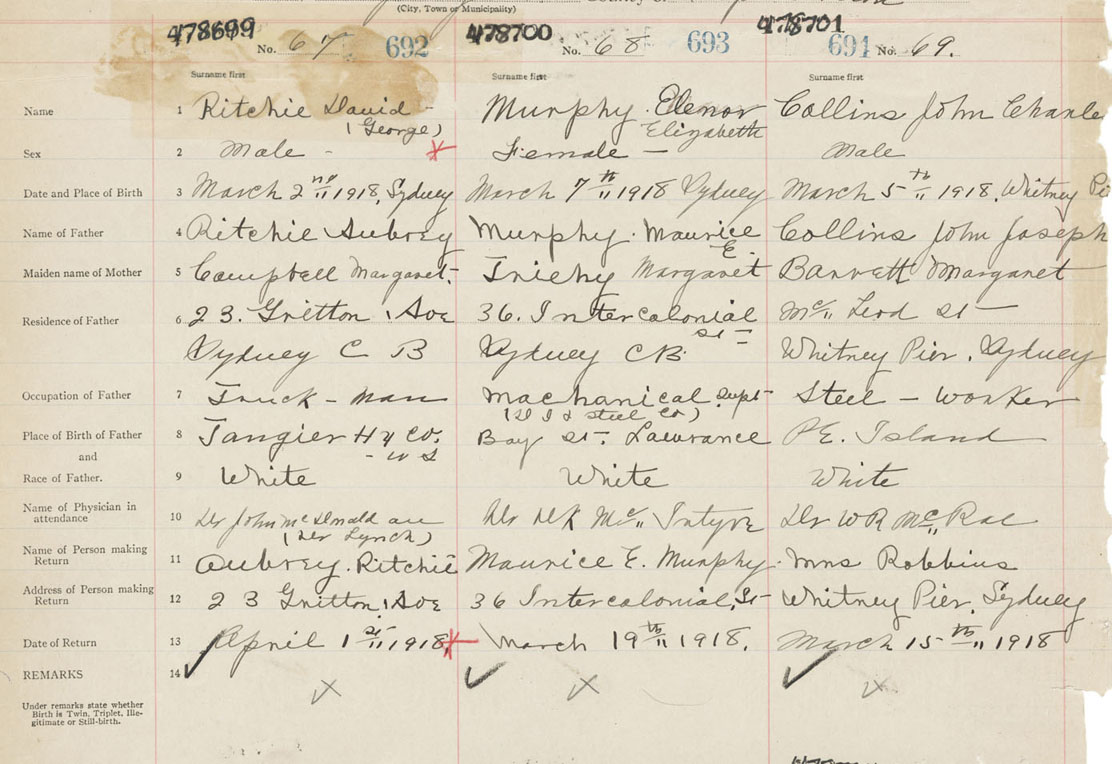 (City, Town or Municipality)
478699 478700 478701
No. 67 692 No. 68 693 694 No. 69.
Surname first Surname first Surname first
Name 1 Ritchie David - Murphy. Elenor Collins John Charle
(George) Elizabeth
Sex 2 Male - Female - Male
Date and Place of Birth 3 March 2nd 1918, Sydney March 7th 1918 Sydney March 5th 1918, Whitney Pi
Name of Father 4 Ritchie Aubrey Murphy. Maurice Collins John Joseph
E.
Maiden name of Mother 5 Campbell Margaret. Margaret Barrett Margaret
Residence of Father 6 23. Gritton Ave 36. Intercolonial McLeod St -
St -
Sydney C B Sydney CB. Whitney Pier. Sydney
Occupation of Father 7 Truck - man Machanical Supt Steel - worker
(D I & Steel Co)
Place of Birth of Father 8 Tangier Hx Co. Bay St. Lawrance P.E. Island
and - N S
Race of Father. 9 White White White
Name of Physician in attendance 10 Dr John McDonald Dr DK McIntyre Dr WR McRae
(Dr Lynch)
Name of Person making Return 11 Aubrey. Ritchie Maurice E. Murphy. Mrs Robbins
Address of Person making Return 12 23 Gritton Ave 36 Intercolonial, St - Whitney Pier, Sydney
Date of Return 13 April 1st 1918 March 19th 1918. March 15th 1918
REMARKS 14
Under remarks state whether
Birth is Twin, Triplet, Ille-
gitimate or Still-birth.